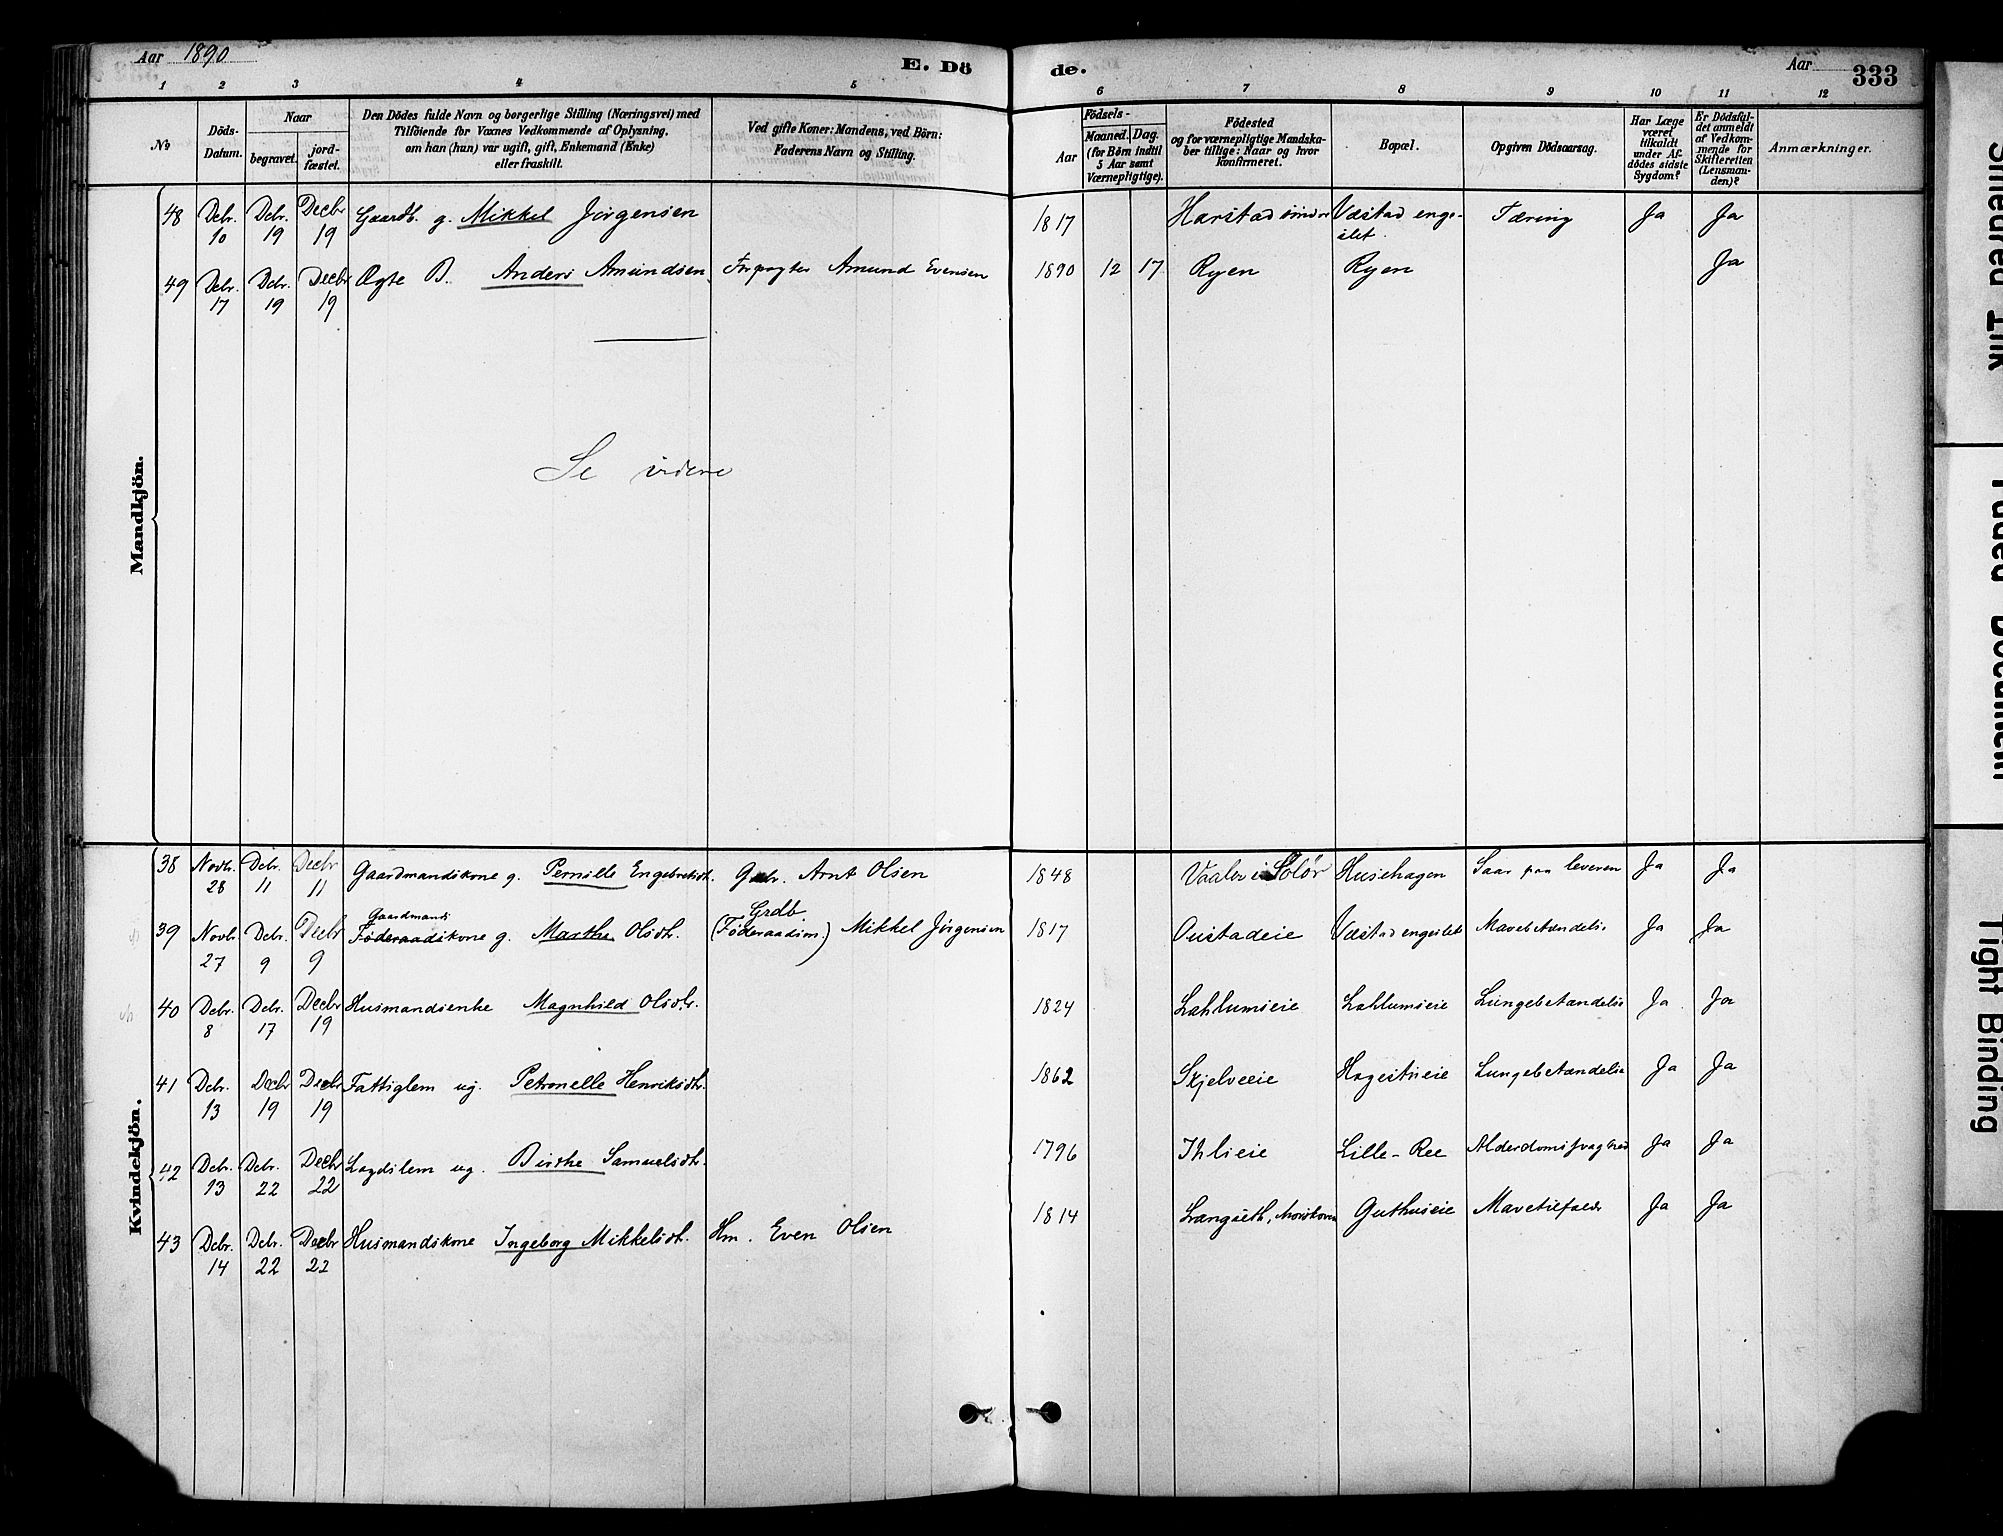 Aar 1890
E. Dö
de.
Aar
333
1 2 3 4 5 6 7 8 9 10 11 12
No
Döds-
Datum.
Naar
begravet.
jord-
fæstet.
Den Dödes fulde Navn og borgerlige Stilling (Næringsvei) med
Tilföiende for Voxnes Vedkommende af Oplysning,
om han (hun) var ugift, gift, Enkemand (Enke)
eller fraskilt.
Ved gifte Koner: Mandens, ved Börn:
Faderens Navn og Stilling.
Födsels-
Aar
Maaned. Dag.
(for Börn indtil
5 Aar samt
Værnepligtige).
Födested
og for værnepligtige Mandska-
ber tillige: Naar og hvor
konfirmeret.
Bopæl.
Opgiven Dödsaarsag.
Har Læge
været
tilkaldt
under Af-
dödes sidste
Sygdom?
Er Dödsfal-
det anmeldt
af Vedkom-
mende for
Skifteretten
(Lensman-
den)?
Anmærkninger.
Mandkjön.
48 Debr. 10 Debr. 19 Decbr 19 Gaardb. g. Mikkel Jørgensen 1817 Harstad søndre Væstad enge-
slet. Tæring Ja Ja
49 Debr. 17 Debr. 19 Decbr 19 Ægte B. Anders Amundsen Forpagter Amund Evensen 1890 12 17 Ryen Ryen Ja
Se videre
Kvindekjön.
38 Novbr. 28 Debr. 11 Decbr 11 Gaardmandskone g. Pernille Engebretsdtr. Gbr. Arnt Olsen 1848 Vaaler i Solør Husehagen Saar paa leveren Ja Ja
Gaardmands Grdb.
39 Novbr. 27 Debr. 9 Decbr 9 Føderaadskone g. Marthe Olsdtr. (Føderaadsm.) Mikkel Jørgensen 1817 Oustadeie Væstad engeslet Mavebetændelse Ja Ja
40 Debr. 8 Debr. 17 Decbr 19 Husmandsenke Magnhild Olsdtr. 1824 Lahlumseie Lahlumseie Lungebetændelse Ja Ja
41 Debr. 13 Decbr 19 Decbr 19 Fattiglem ug. Petronelle Henriksdtr. 1862 Skjelveeie Hagestueie Lungebetændelse Ja Ja
42 Debr. 13 Debr. 22 Decbr 22 Lægdslem ug. Birthe Samuelsdtr. 1796 Ihlseie Lille-Ree Alderdomssvaghed Ja Ja
43 Debr. 14 Debr. 22 Decbr 22 Husmandskone Ingeborg Mikkelsdtr. Hm. Even Olsen 1814 Langseth, Guthuseie Mavetilfælde Ja Ja
Smeared Ink
Faded Document
Tight Binding